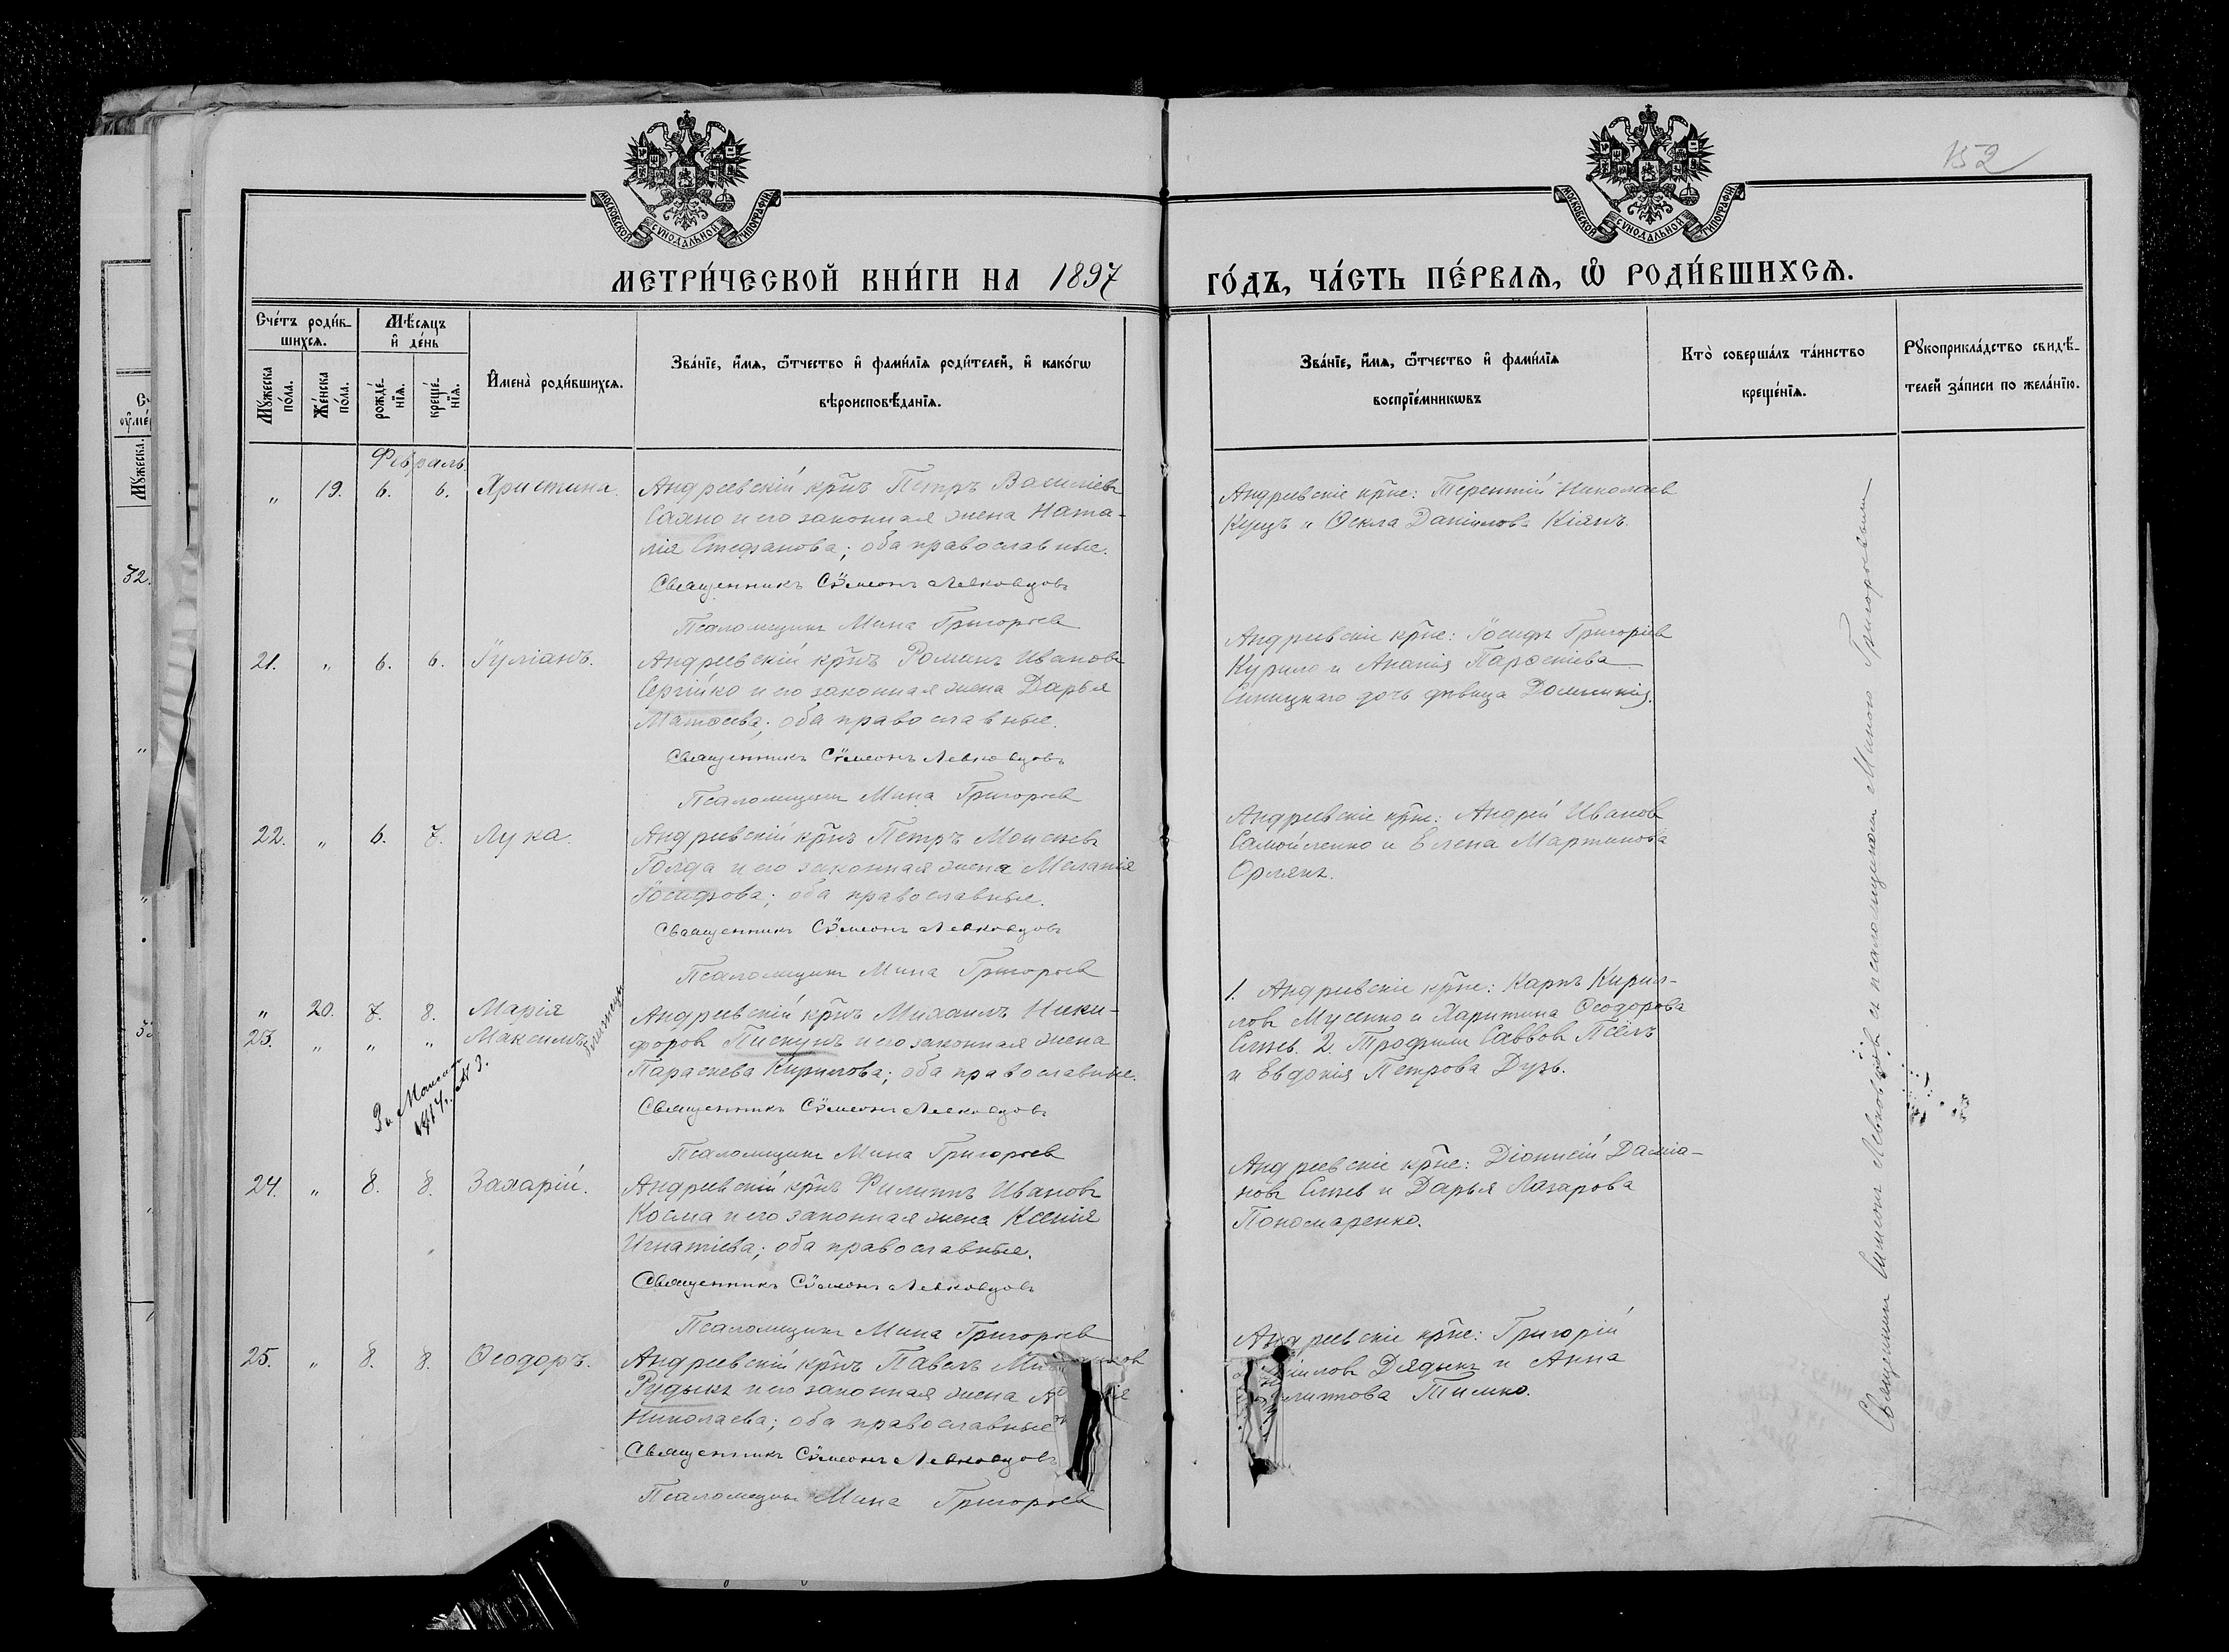 152
МОСКОВСКОЙ СѴНОДАЛЬНОЙ ТИПОГРАФІИ
МОСКОВСКОЙ СѴНОДАЛЬНОЙ ТИПОГРАФІИ
МЕТРИ́ЧЕСКОЙ КНИ́ГИ НА 1897
ГО́ДЪ, ЧА́СТЬ ПЕ́РВАѦ, Ѡ҆ РОДИ́ВШИХСѦ.
Сче́тъ роди́в-
шихсѧ.
Мѣ́сѧцъ
и҆ де́нь
Мꙋ́жеска
по́ла.
Же́нска
по́ла.
рожде́-
нїѧ.
креще́-
нїѧ.
И҆мена̀ роди́вшихсѧ.
Зва́нїе, и҆́мѧ, ѻ҆́тчество и҆ фами́лїѧ роди́телей, и҆ како́гѡ
вѣроисповѣ́данїѧ.
Зва́нїе, и҆́мѧ, ѻ҆́тчество и҆ фами́лїѧ
воспрїе́мникѡвъ
Кто̀ соверша́лъ та́инство
креще́нїѧ.
Рꙋкоприкла́дство свидѣ́-
телей за́писи по жела́нїю.
Февраль.
„ 19. 6. 6. Христина.
Андреевскій кр̃нъ Петръ Василіевъ
Саяно и его законная жена Ната-
лія Стефанова; оба православные.
Священникъ Сѷмеонъ Левковцовъ
Псаломщикъ Мина Григорьев
Андреевскіе кр̃не: Терентій Николаев
Куцъ и Ѳекла Даніилова Кіянъ.
21. „ 6. 6. Іуліанъ.
Андреевскій кр̃нъ Романъ Ивановъ
Сергійко и его законная жена Дарья
Матѳеева; оба православные.
Священникъ Сѷмеонъ Левковцовъ
Псаломщикъ Мина Григорьев
Андреевскіе кр̃не: Іосифъ Григоріев
Курило и Ананія
Синицкаго дочь дѣвица Домникія.
22. „ 6. 7. Лука.
Андреевскій кр̃нъ Петръ Моисеевъ
Голда и его законная жена Меланія
Іосифова; оба православные.
Священникъ Сѷмеонъ Левковцовъ
Псаломщикъ Мина Григорьев
Андреевскіе кр̃не: Андрей Иванов
Самойленко и Елена Мартинова
Орлянъ.
„ 20. 7. 8. Марія
23. „ „ „ Максимъ
близнецы
Андреевскій кр̃нъ Михаилъ Ники-
форов Пискунъ и его законная жена
Параскева Кирилова; оба православные.
Священникъ Сѷмеонъ Левковцовъ
Псаломщикъ Мина Григорьев
1. Андреевскіе кр̃не: Карпъ Кирил-
ловъ Мусенко и Харитина Ѳеодорова
2. Трофимъ Саввовъ Псёлъ
и Евдокія Петрова Дузь.
24. „ 8. 8. Захарій.
Андреевскій кр̃нъ Филиппъ Ивановъ
Косма и его законная жена Ксенія
Игнатіева; оба православные.
Священникъ Сѷмеонъ Левковцовъ
Псаломщикъ Мина Григорьев
Андреевскіе кр̃не: Діонисій Даміа-
новъ и Дарья Лазарова
Пономаренко.
25. „ 8. 8. Ѳеодоръ.
Андреевскій кр̃нъ Павелъ
Рудыкъ и его законная жена
Николаева; оба православные
Священникъ Сѷмеонъ Левковцовъ
Псаломщикъ Мина Григорьев
Андреевскіе кр̃не: Григорій
Дядыкъ и Анна
Тимко.
Священникъ Симеонъ Левковцовъ съ псаломщикомъ Миною Григорьевымъ